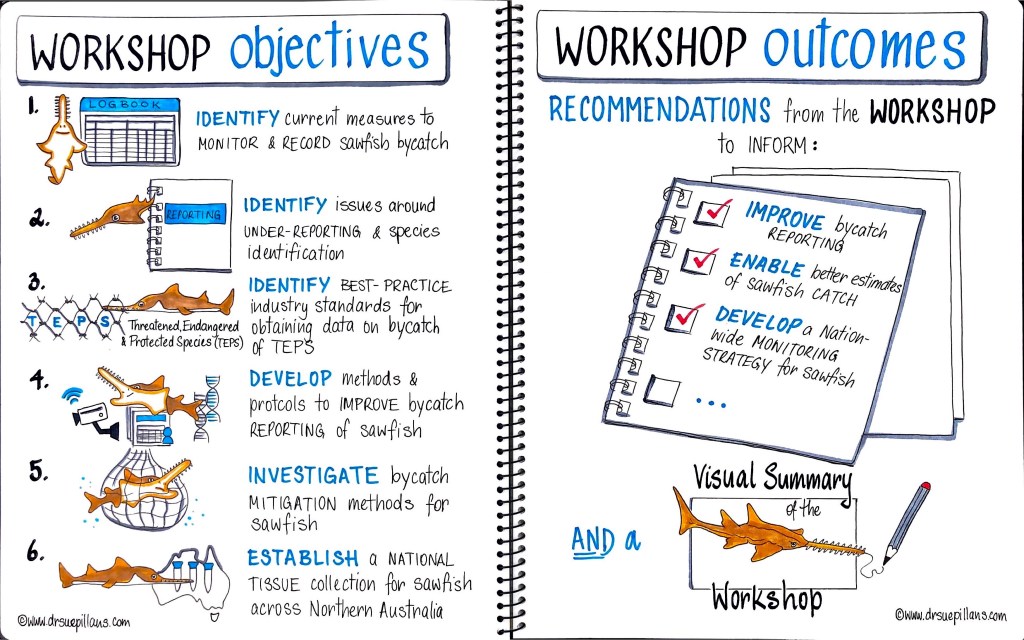 WORKSHOP objectives
1.
LOGBOOK
IDENTIFY current measures to
MONITOR & RECORD sawfish bycatch
2.
REPORTING
IDENTIFY issues around
UNDER-REPORTING & species
identification
3.
T E P S
Threatened, Endangered
& Protected Species (TEPS)
IDENTIFY BEST-PRACTICE
industry standards for
obtaining data on bycatch
of TEPS
4.
DEVELOP methods &
protcols to IMPROVE bycatch
REPORTING of sawfish
5.
INVESTIGATE bycatch
MITIGATION methods for
sawfish
6.
ESTABLISH a NATIONAL
TISSUE collection for sawfish
across Northern Australia
©www.drsuepillans.com
WORKSHOP outcomes
RECOMMENDATIONS from the WORKSHOP
to INFORM:
IMPROVE bycatch
REPORTING
ENABLE better estimates
of sawfish CATCH
DEVELOP a Nation-
wide MONITORING
STRATEGY for sawfish
...
AND a
Visual Summary
of the
Workshop
©www.drsuepillans.com